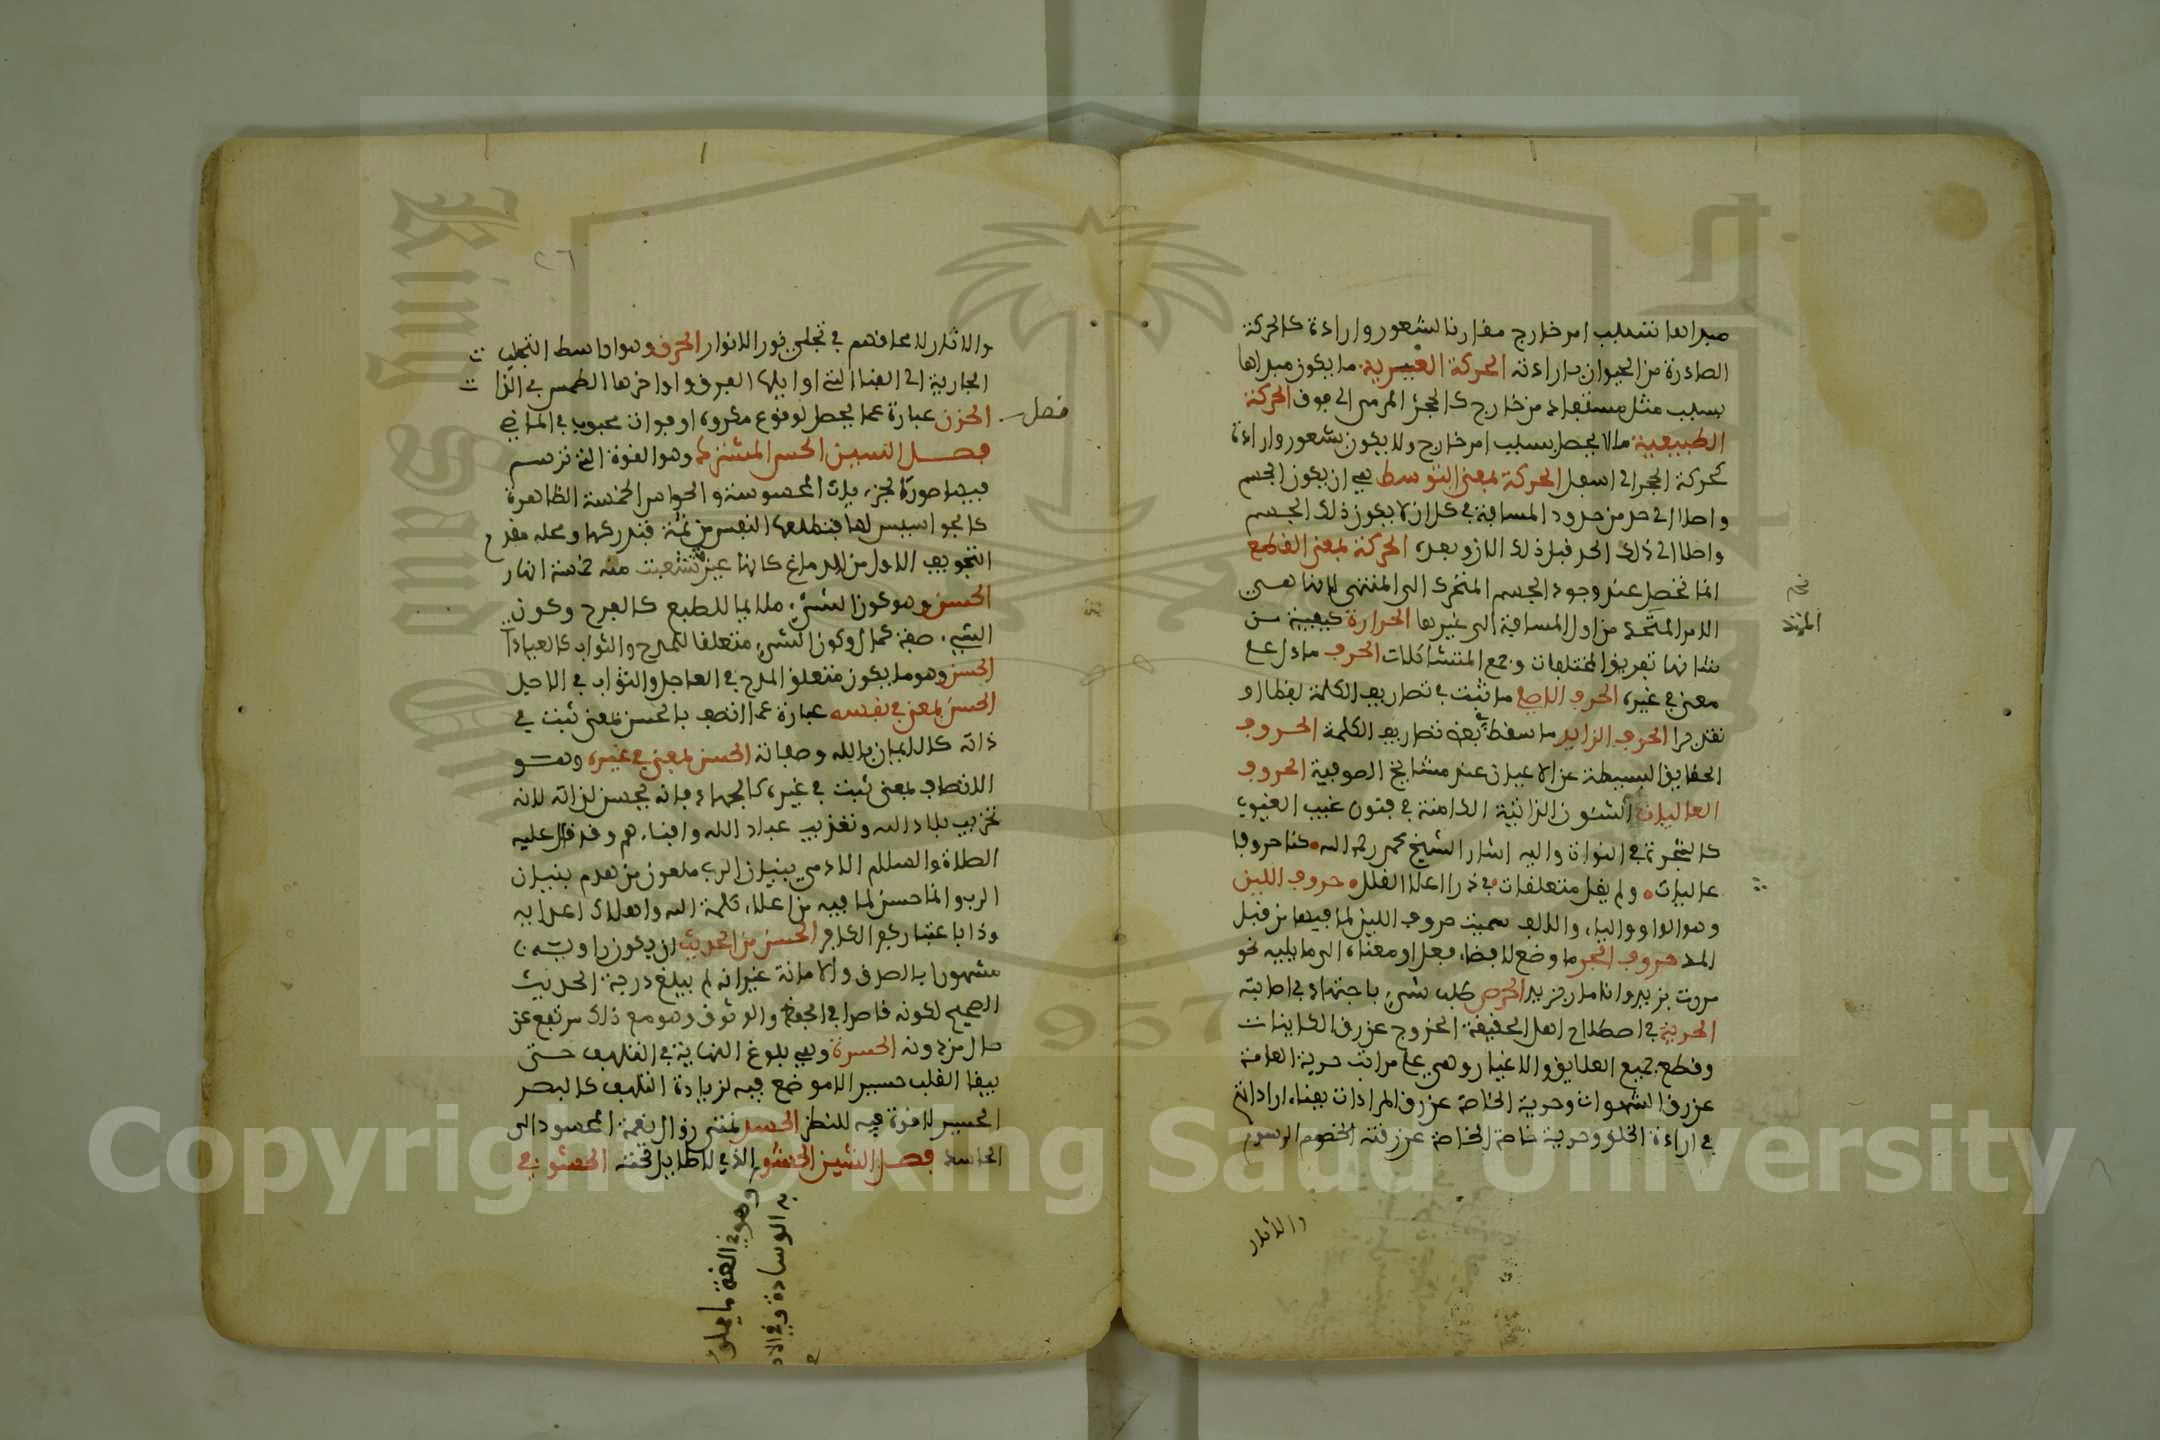 مبداها بسبب امر خارج مقارنا لشعور وارادة كالحركة
الصادرة من الحيوان بارادته الحركة القسرية ما يكون مبداها
بسبب مثل مستفاد من خارج كالحجر المرمى الى فوق الحركة
الطبيعية ما لا يحصل بسبب امر خارج ولا يكون بشعور وارادة
كحركة الحجر الى اسفل الحركة بمعنى التوسط هي ان يكون الجسم
واصلا الى حد من حدود المسافة في كل ان لا يكون ذلك الجسم
واصلا الى ذلك الحد قبل ذلك الان وبعده الحركة بمعنى القطع
انما تحصل عند وجود الجسم المتحرك الى المنتهى لانها هي
الامر الممتد من اول المسافة الى اخرها الحرارة كيفية من
شانها تفريق المختلفات وجمع المتشاكلات الحرف ما دل على
معنى في غيره الحرف الاصلي ما ثبت في تصاريف الكلمة لفظا او
تقديرا الحرف الزايد ما سقط في بعض تصاريف الكلمة الحروف
الحقايق البسيطة من الاعيان عند مشايخ الصوفية الحروف
العاليات الشئون الذاتية الكامنة في غيب الغيوب
كالشجرة في النواة واليه اشار الشيخ محمد رحمه الله كنا حروفا
عاليات ولم نقل متعلقات في ذرا اعلا القلل حروف اللين
وهو الواو والياء والالف سميت حروف اللين لما فيها من قبل
المد حروف الجر ما وضع لافضاء فعل او معناه الى ما يليه نحو
مررت بزيد وانا مار بزيد الحرص طلب شيء باجتهاد في اصابته
الحرية في اصطلاح اهل الحقيقة الخروج عن رق الكاينات
وقطع جميع العلايق والاغيار وهي على مراتب حرية العامة
عن رق الشهوات وحرية الخاصة عن رق المرادات بفناء اراداتهم
في ارادة الخلق وحرية خاصة الخاصة عن رق الرسوم
والاثار
الممتد
٢٦
والاثار لانمحاقهم في تجلي نور الانوار الحرق وهو اواسط التجليات
الجارية الى الفنا التي اوايلها البرق واواخرها الطمس في الذات
الحزن عبارة عما يحصل لوقوع مكروه او فوات محبوب في الماضي
فصل
فصل السين الحس المشترك وهو القوة التي ترتسم
فيها صورة الجزييات المحسوسة والحواس الخمسة الظاهرة
كالجواسيس لها فتطلعها النفس من ثمة فتدركها ومحله مقدم
التجويف الاول من الدماغ كانها عين تشعبت منه خمسة انهار
الحسن وهو كون الشيء ملايما للطبع كالفرح وكون
الشيء صفة كمال وكون الشيء متعلقا للمدح والثواب كالعبادات
الحسن وهو ما يكون متعلق المدح في العاجل والثواب في الاجل
الحسن بمعنى في نفسه عبارة عما اتصف بالحسن بمعنى ثبت في
ذاته كالايمان بالله وصفاته الحسن بمعنى في غيره وهو
الاتصاف بمعنى ثبت في غيره كالجهاد فانه يحسن لذاته لانه
تخريب بلاد الله وتعذيب عباد الله وافناءهم وقد قال عليه
الصلاة والسلام الادمي بنيان الرب ملعون من هدم بنيان
الرب وانما حسن لما فيه من اعلاء كلمة الله واهلاك اعدايه
وذا باعتبار كفر الكافر الحسن من الحديث ان يكون راويه
مشهورا بالصدق والامانة غير انه لم يبلغ درجة الحديث
الصحيح لكونه قاصرا في الحفظ والوثوق وهو مع ذلك مرتفع عن
حال من دونه الحسرة وهي بلوغ النهاية في التلهف حتى
يبقا القلب حسيرا لا موضع فيه لزيادة التلهف كالبصر
الحسير لا قوة فيه للنظر الحسد تمني زوال نعمة المحسود الى
الحاسد فصل الشين الحشو الذي لا طايل تحته الحشو في
وهو في اللغة ما يملا
به الوسادة وفي الا
Copyright © King Saud University
King Saud University
1957